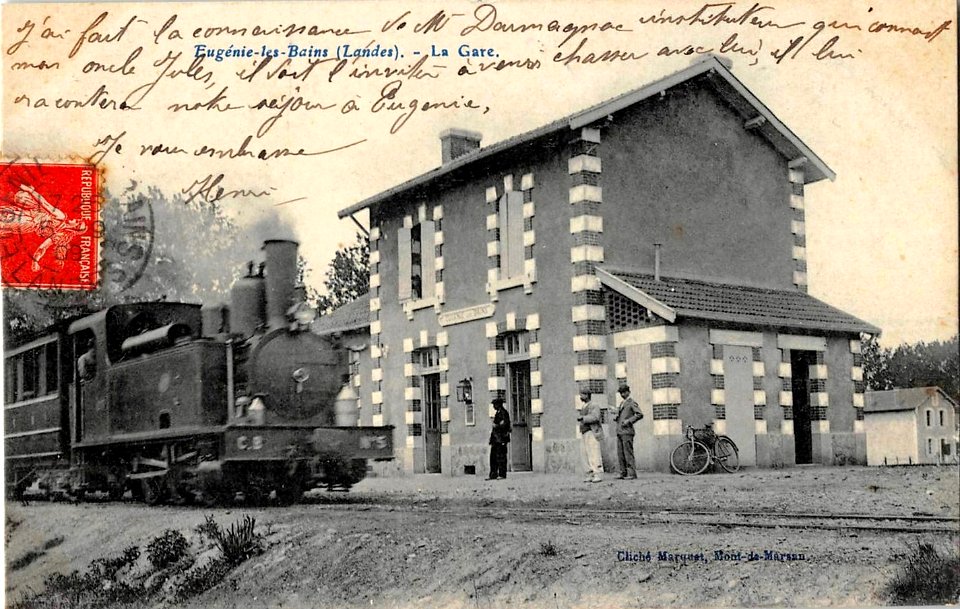 J'ai fait la connaissance de Mr Darmagnac instituteur qui connait
Eugénie-les-Bains (Landes). - La Gare.
mon oncle Jules, il doit l'inviter à venir chasser avec lui, il lui
racontera notre séjour à Eugenie,
Je vous embrasse
Henri
RÉPUBLIQUE FRANÇAISE
EUGENIE-LES-BAINS
C.B N°5
Cliché Marquet, Mont-de-Marsan